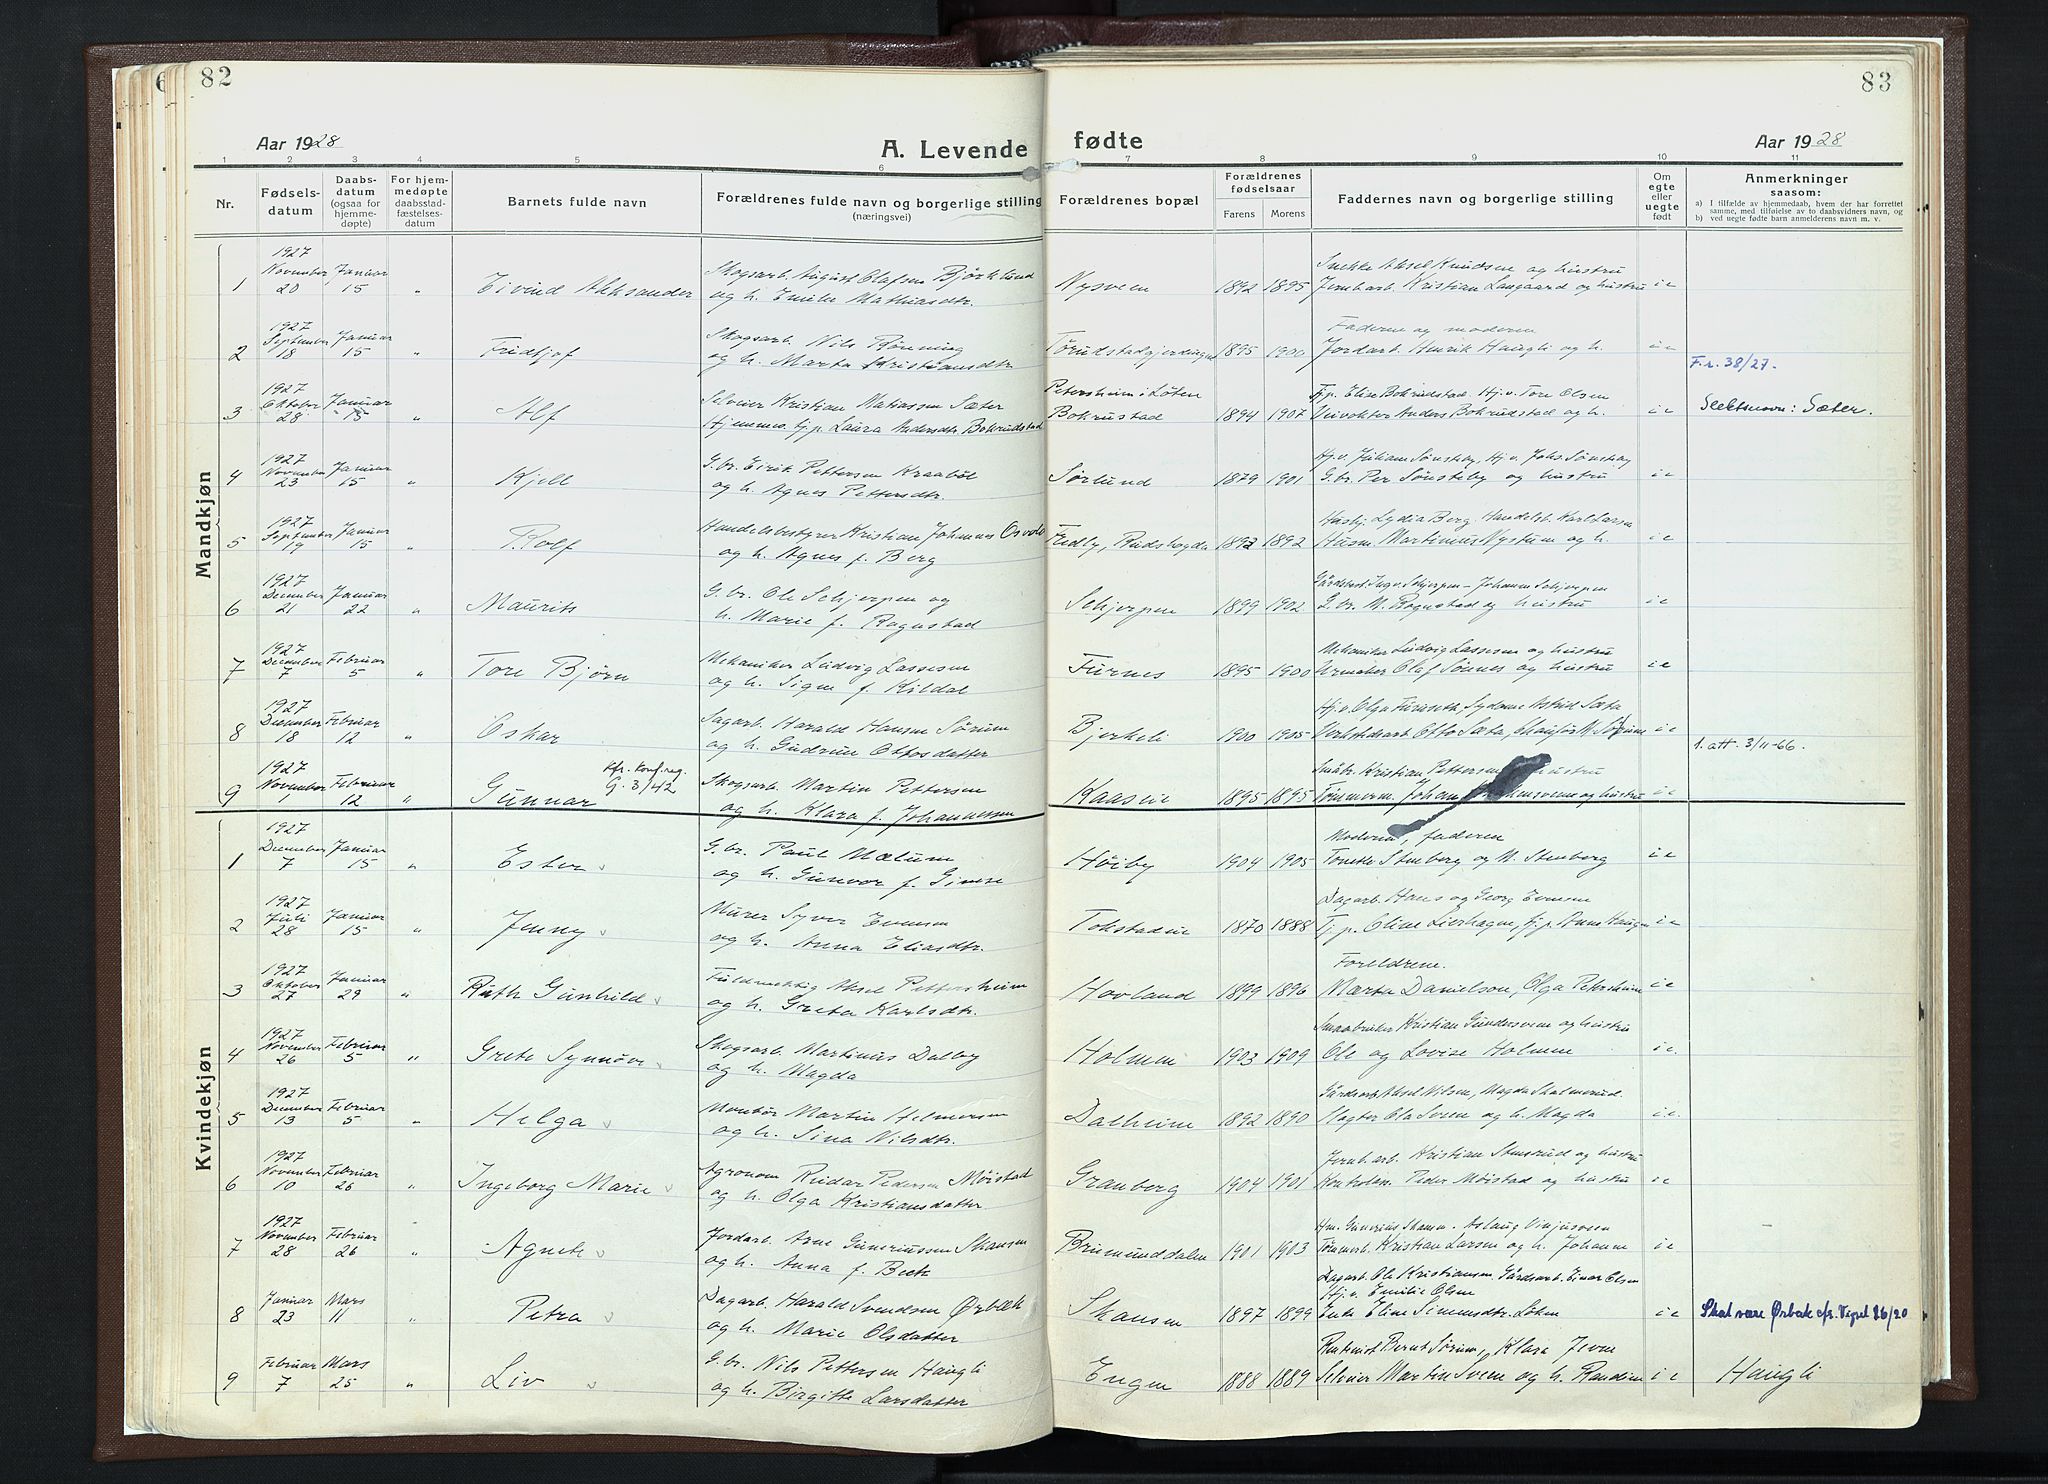 82
83
Aar 1928
A. Levende
fødte
Aar 1928
1 2 3 4 5 6 7 8 9 10 11
Nr.
Fødsels-
datum
Daabs-
datum
(ogsaa for
hjemme-
døpte)
For hjem-
medøpte
daabsstad-
fæstelses-
datum
Barnets fulde navn
Forældrenes fulde navn og borgerlige stilling
(næringsvei)
Forældrenes bopæl
Forældrenes
fødselsaar
Farens
Morens
Faddernes navn og borgerlige stilling
Om
egte
eller
uegte
født
Anmerkninger
saasom:
a) I tilfælde av hjemmedaab, hvem der har forrettet
samme, med tilføielse av to daabsvidners navn, og
b) ved uegte fødte barn anmelderens navn m. v.
Mandkjøn
1927
November Januar Skogsarb. August Olafsen Björklund Snekke Aksel Knudsen og hustru
1 20 15 " Eivind Aleksander og h. Emilie Mathiasdtr. Nysveen 1892 1895 Jernbarb. Kristian Langaard og hustru i e
1927
September Januar Skogsarb. Nils Rønning Faderen og moderen
2 18 15 " Fridtjof og h. Marta Kristiansdtr. 1895 1900 Jordarb. Henrik Haugli og h. i e
F.r. 38/27.
1927
Oktober Januar Selveier Kristian Matiassen Sæter Petersheim i Løten Tj.p. Elise Bokrudstad. Hj.v. Tore Olsen
3 28 15 " Alf Hjemmev. tj.p. Laura Andersdtr. Bokrudstad Bokrustad 1894 1907 Veivokter Anders Bokrudstad og h. i e Slektsnavn: Sæter.
1927
November Januar G.br. Eirik Pettersen Kraabøl Hj.v. Juliane Sønsteby, Hj.v. Johs. Sønsteby
4 23 15 " Kjell og h. Agnes Pettersdtr. Sørlund 1879 1901 G.br. Per Sønsteby og hustru i e
1927
September Januar Handelsbestyrer Kristian Johannes Husbj. Lydia Berg. Handelsb. Karl Larsen
5 19 15 " Rolf og h. Agnes f. Berg Fredby, Rudshøgda 1892 1892 Husm. Martinius Nystuen og h. i e
1927
December Januar G.br. Ole Schjerpen og
6 21 22 " Maurits h. Marie f. Rognstad Schjerpen 1899 1902 G.br. M. Rognstad og hustru i e
1927
December Februar Mekaniker Ludvig Lassesen Mekaniker Ludvig Lassesen og hustru
7 7 5 " Tore Bjørn og h. Signe f. Kildal Furnes 1895 1900 Urmaker Olaf Sønnes og hustru i e
1927
December Februar Sagarb. Harald Hansen Sørum Hj.v. Olga Furuseth, Sydame Astrid Sæta
8 18 12 " Oskar og h. Gudrun Ottosdatter Bjerkeli 1900 1905 Verkstedsarb. Otto Sæta, i e
1. att. 3/11-66.
1927
Kfr. Konf.reg.
G. 3/42
November Februar Skogsarb. Martin Pettersen Småbr. Kristian Pettersen hustru
9 1 12 " Gunnar og h. Klara f. Johannessen Kaaseie 1895 1895 Tømmerm. Johan og hustru i e
Kvindekjøn
1927
December Januar G.br. Paul Mælum Moderen, faderen
1 7 15 " Ester og h. Gunvor f. Høiby 1904 1905 Tomelv Stenberg og M. Stenberg i e
1927
Juli Januar Murer Syver Evensen Dagarb. Hans og Georg Evensen
2 28 15 " Jenny og h. Anna Eliasdtr. Tokstadeie 1870 1888 i e
1927
Oktober Januar Fuldmektig Aksel Pettersheim Forældrene.
3 27 29 " Ruth Gunhild og h. Greta Karlsdtr. Hovland 1899 1896 Marta Danielson, Olga Petersheim i e
1927
November Februar Skogsarb. Martinus Dalby Smaabruker Kristian Gundersveen og hustru
4 26 5 " Grete Synnøve og h. Magda Holmen 1903 1909 Ole og Lovise Holmen i e.
1927
December Februar Montør Martin Helmersen Gårdsarb. Aksel Nilsen, Magda Skalmerud.
5 13 5 " Helga og h. Sina Nilsdtr. Dalheim 1892 1890 Slagter Ola Sveen og h. Magda i e.
1927
November Februar Agronom Reidar Pedersen Møistad Jernb.arb. Kristian Stensrud og hustru
6 10 26 " Ingeborg Marie og h. Olga Kristiansdatter Granberg 1904 1901 Kontoløsn. Peder Møistad og hustru i e
1927
November Februar Jordarb. Arne Gunerius­sen Skansen Hm. Gunerius Skansen. Aslaug Vinjusveen
7 28 26 " Agnete og h. Anna f. Beck Brumunddalen 1901 1903 Tømmerb. Kristian Larsen og h. Johanne i e
Dagarb. Ole Kristiansen. Gårdsarb. Einar Olsen
Januar Mars Dagarb. Harald Svendsen Ørbæk Hj.v. Emilie Olsen
8 23 11 " Petra og h. Marie Olsdatter Skansen 1897 1899 Enke Eline Simensdtr. Løken i e Skal være Ørbæk cfr. Vegsel 26/20
Februar Mars G.br. Nils Pettersen Haugli Rentenist Bernt Sørum, Klara Jevne
9 7 25 " Liv og h. Birgitte Larsdatter Engen 1888 1889 Selveier Martin Sveen og h. Randine i e Haugli